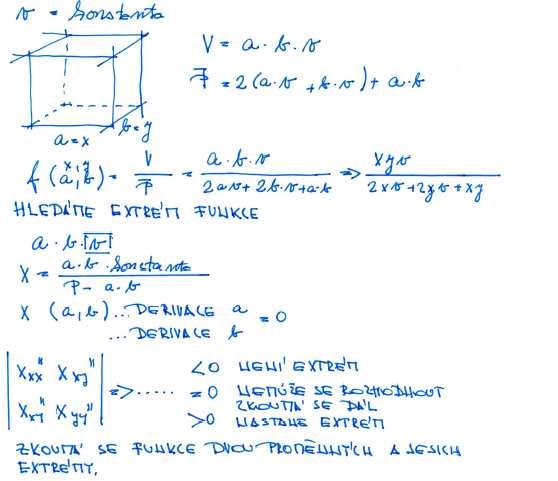 v = konstanta
V = a · b · v
P = 2(a·v + b·v) + a·b
a = x
b = y
f (a, b) = V/P = a·b·v / 2av + 2b·v + a·b => xyv / 2xv + 2yv + xy
x, y
HLEDÁME EXTRÉM FUNKCE
a · b · v
X = a·b · konstanta / P - a·b
X (a, b) ... DERIVACE a = 0
... DERIVACE b
Xxx" Xxy" => ..... < 0 NENÍ EXTRÉM
= 0 NEMŮŽE SE ROZHODNOUT
ZKOUMÁ SE DÁL
Xxy" Xyy" > 0 NASTANE EXTRÉM
ZKOUMÁ SE FUNKCE DVOU PROMĚNNÝCH A JEJICH
EXTRÉMY.